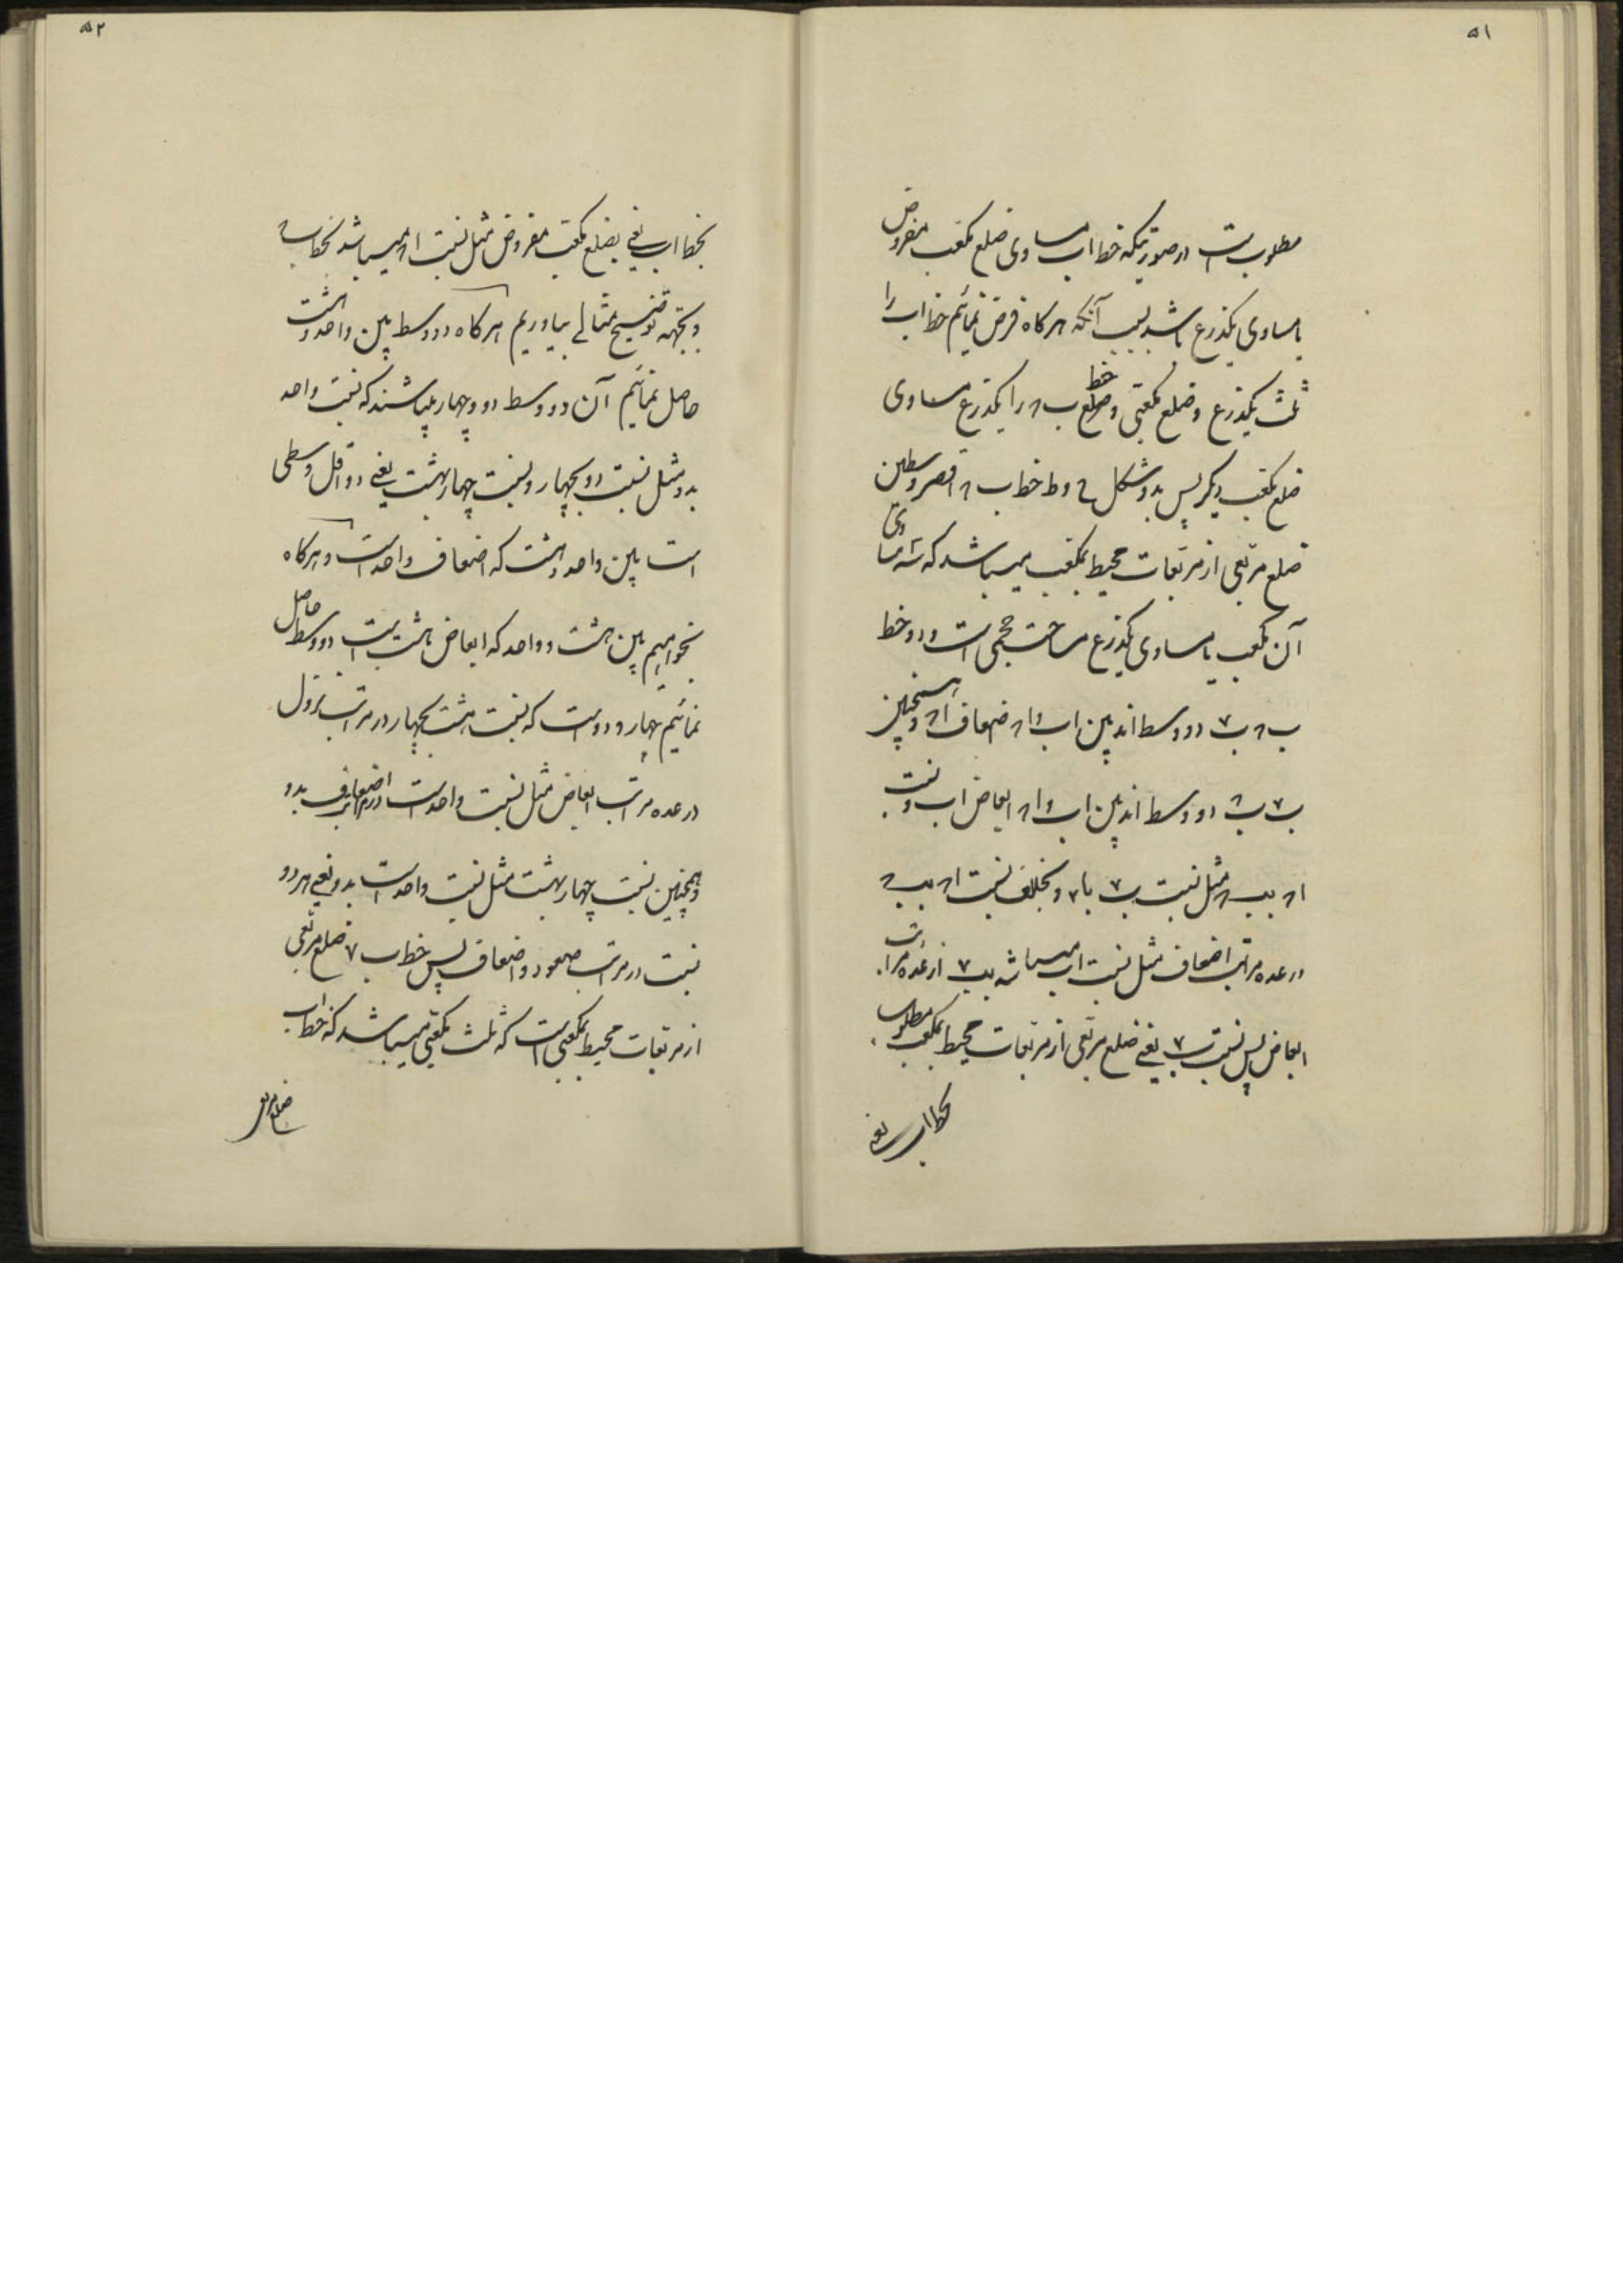 ۵۱
مطلوبست در صورتیکه خط اب مساوی ضلع مکعب مفروض
یا مساوی یکذرع باشد بسبب آنکه هرکاه فرض نمائیم خط اب را
ثلث یکذرع و ضلع مکعبی و خط ضلع ب ۸ را یکذرع مساوی
ضلع مکعب دیکر پس بدو شکل خط ب ۸ اقصر وسطین
ضلع مربعی از مربعات محیط بمکعب میباشد که مساوی
آن مکعب یا مساوی یکذرع مساحت حجمی است و دو خط
ب ۸ ب ۷ دو وسط اند بین اب و ا۸ ضعاف ا۸ و همچنین
ب ۷ ب ۸ دو وسط اند بین اب و ا۸ ابعاض اب و نسبت
ا۸ بب ۸ مثل نسبت ب ۷ با۸ و بخلاف نسبت ا۸ بب ۸
در عده مراتب اضعاف مثل نسبت اب میباشد بب ۷ از عده مراتب
ابعاض پس نسبت ب ۷ یعنی ضلع مربعی از مربعات محیط بمکعب مطلوب
بخط اب یعنی
۵۲
بخط اب یعنی بضلع مکعب مفروض مثل نسبت ا۸ میباشد بخط ب ۸
و بجهه توضیح مثالی بیاوریم هرکاه دو وسط بین واحد و هشت
حاصل نمائیم آن دو وسط دو و چهار میباشند که نسبت واحد
بدو مثل نسبت دو بچهار و نسبت چهار بهشت یعنی دو اقل وسطی
است بین واحد و هشت که اضعاف واحد است و هرکاه
بخواهیم بین هشت و واحد که ابعاض هشت است دو وسط حاصل
نمائیم چهار و دو است که نسبت هشت بچهار در مراتب نزول
در عده مراتب ابعاض مثل نسبت واحد است در مراتب اضعاف بدو
و همچنین نسبت چهار بهشت مثل نسبت واحد است بدو یعنی هر دو
نسبت در مراتب صعود و اضعاف پس خط ب ۷ ضلع مربعی
از مربعات محیط بمکعبی است که ثلث مکعبی میباشد که خط اب
ضلع مربعی